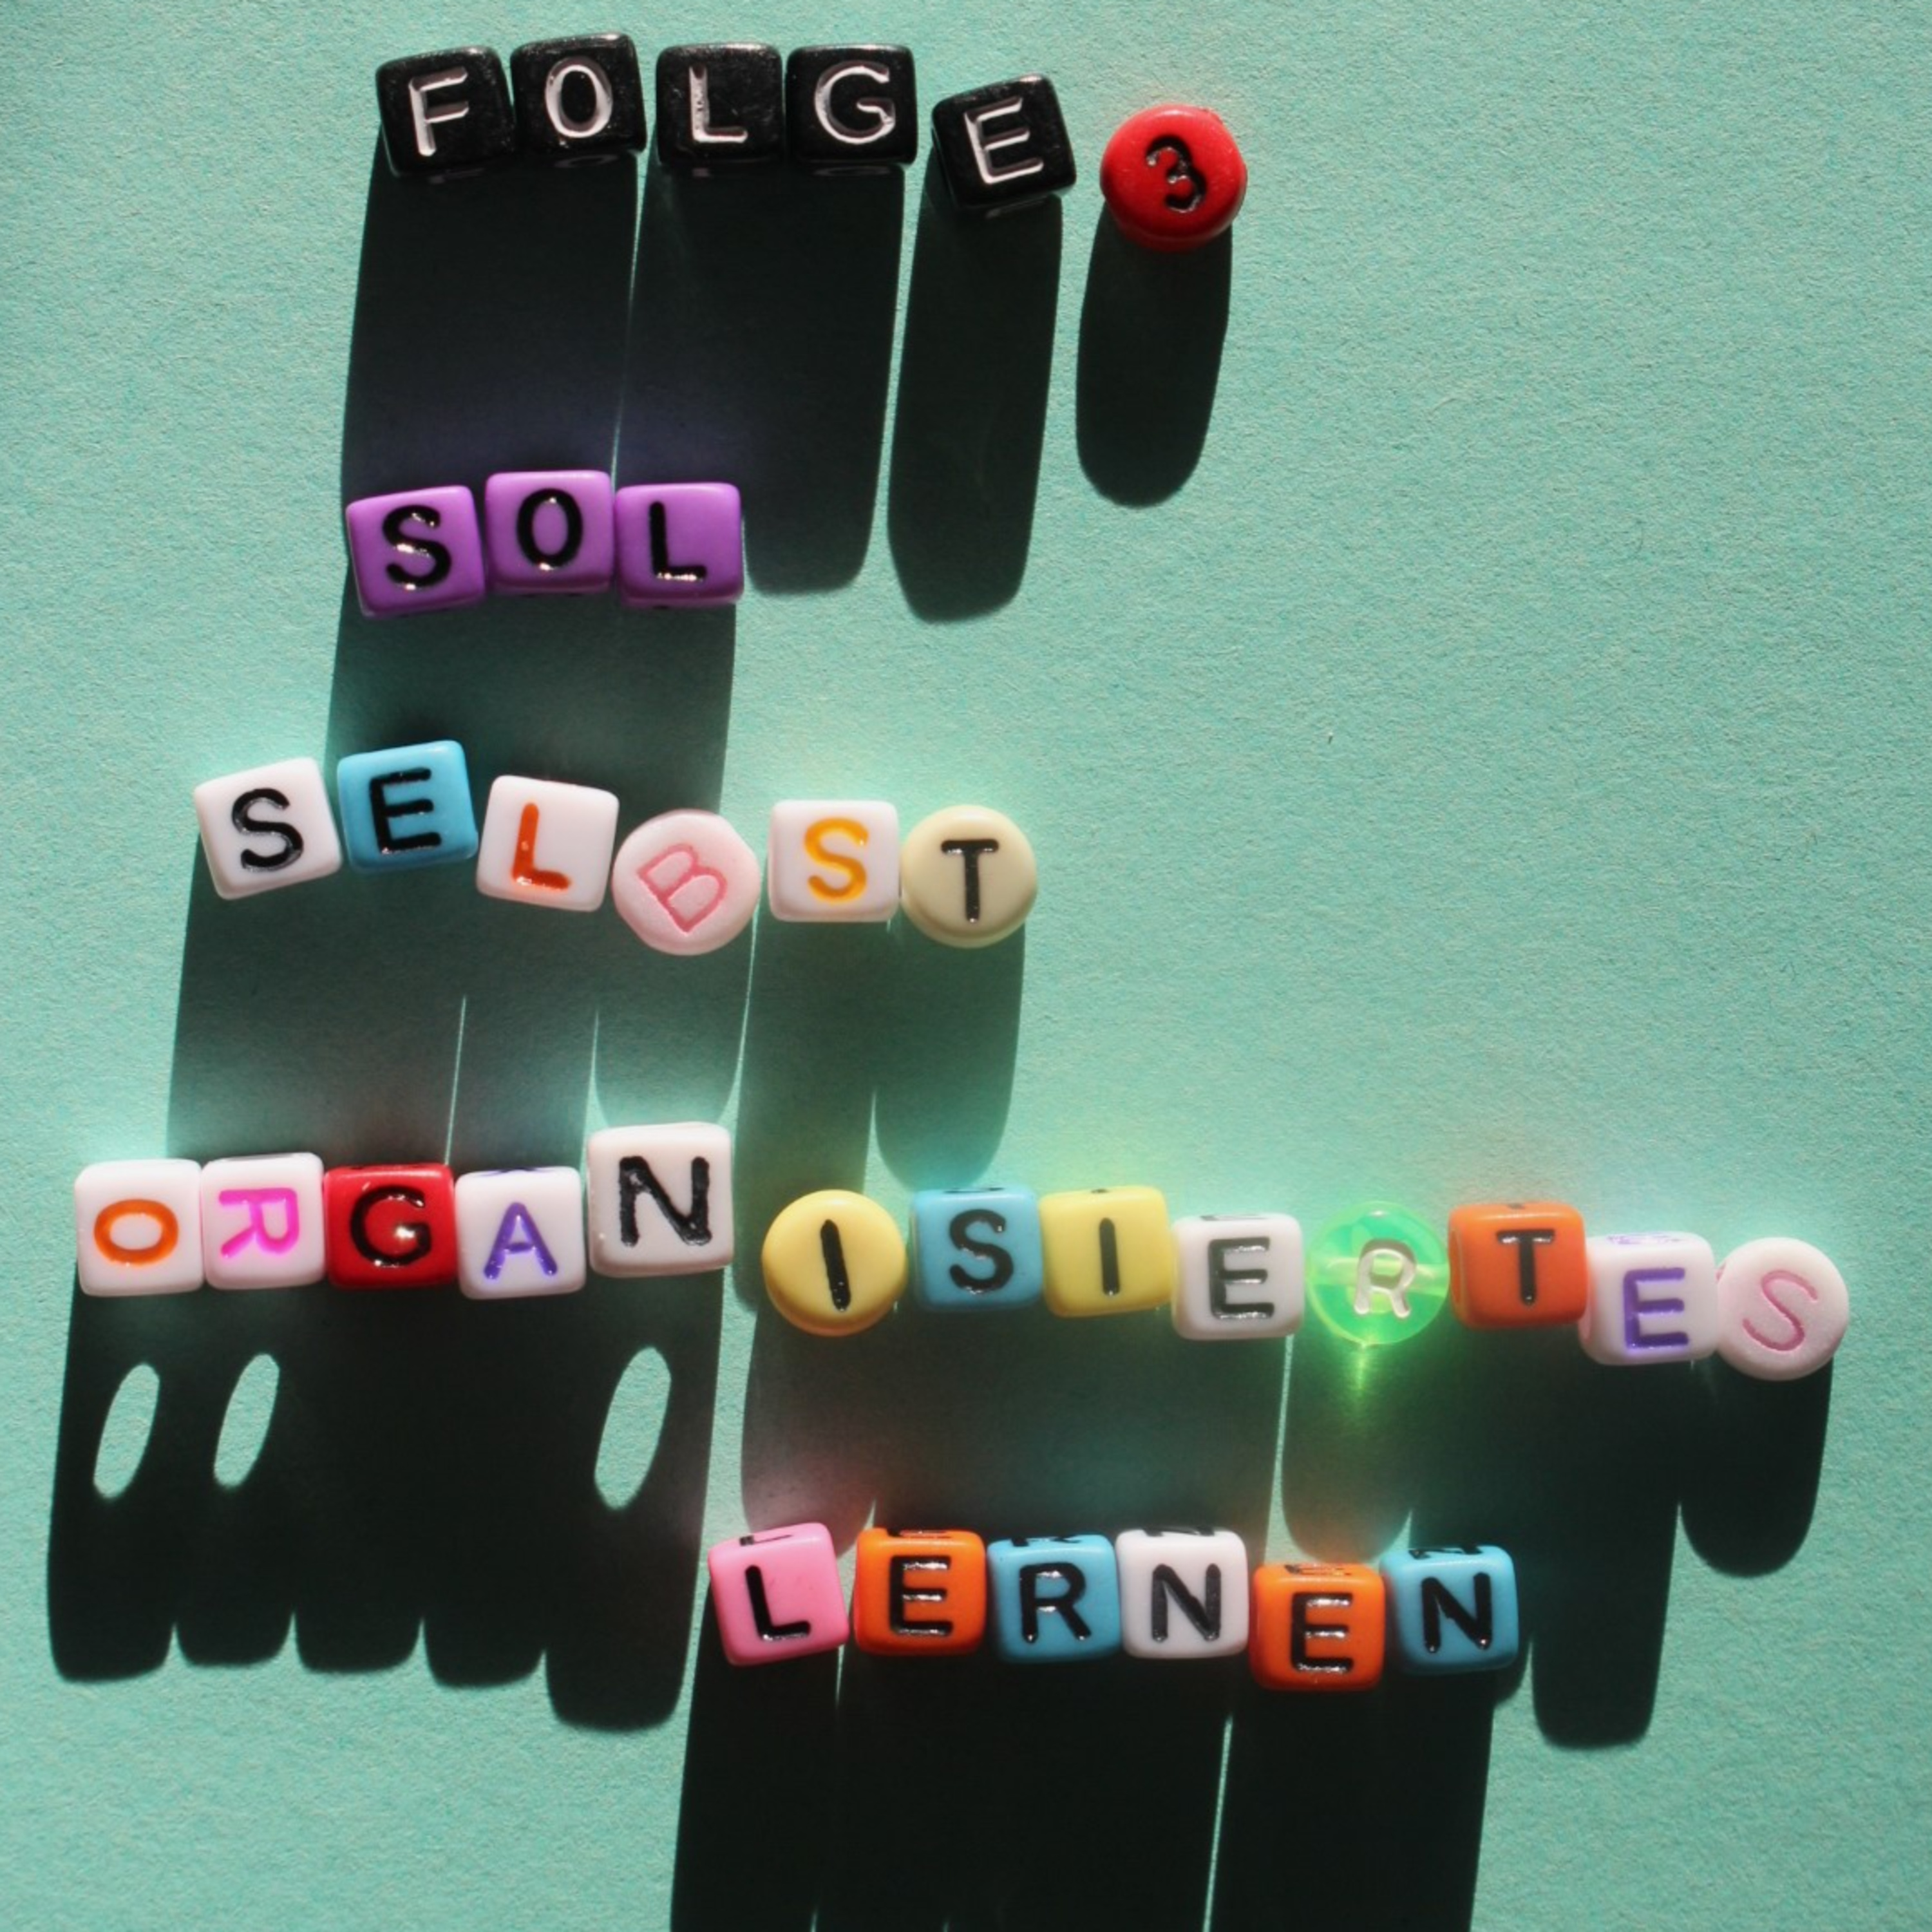 FOLGE 3
SOL
SELBST
ORGANISIERTES
LERNEN